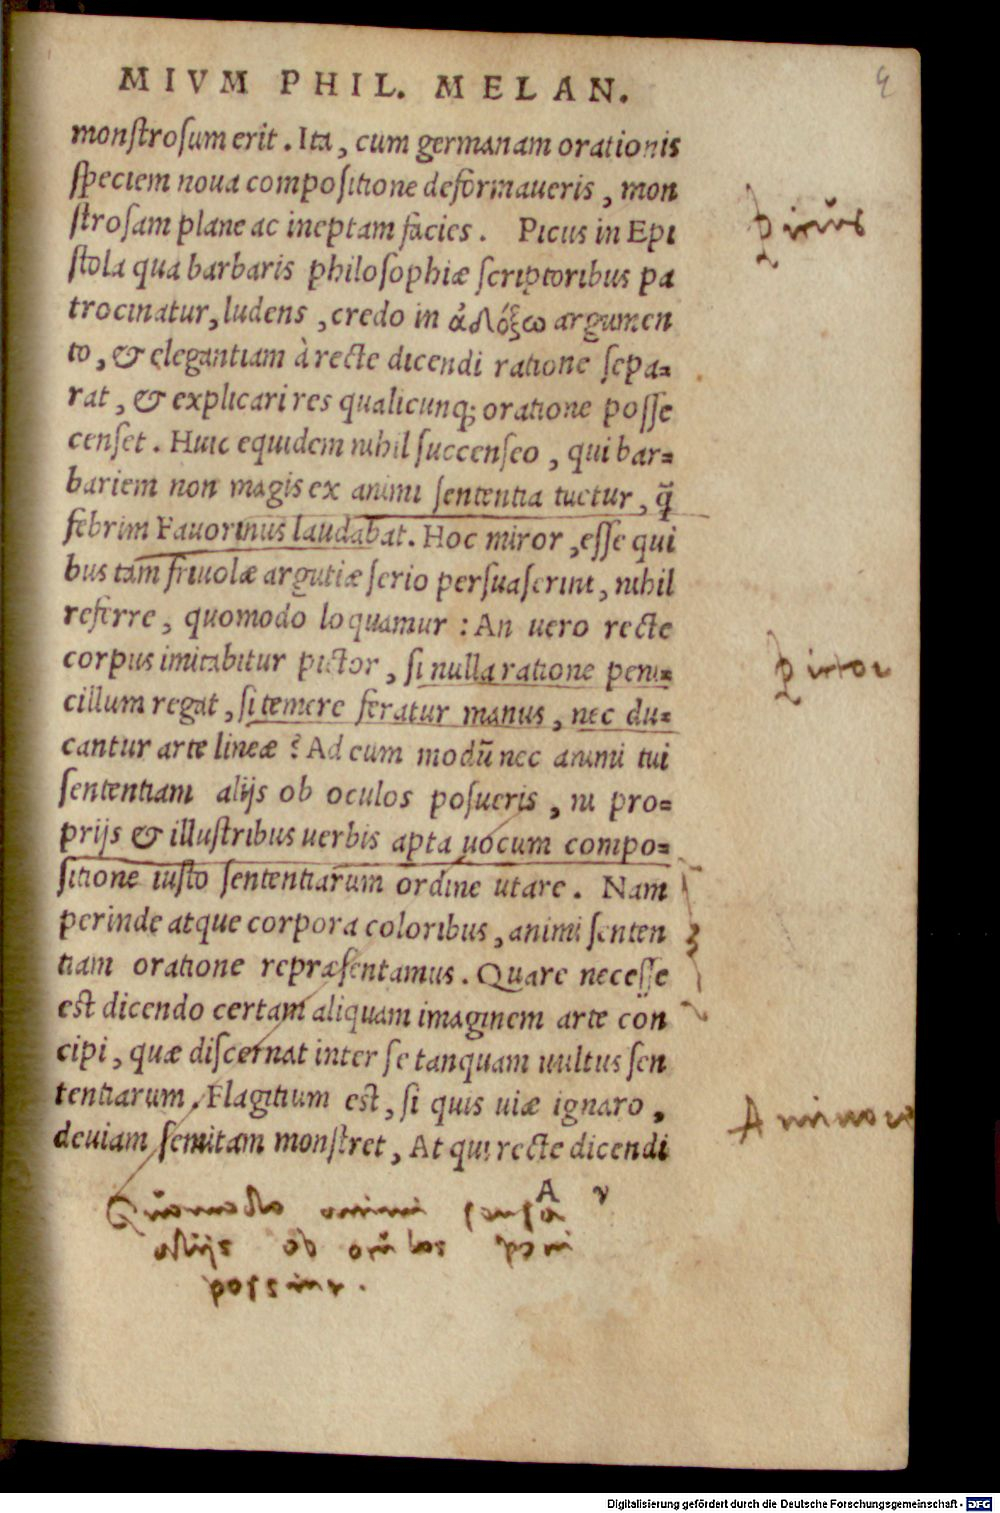 MIVM PHIL. MELAN.
monſtroſum erit. Ita, cum germanam orationis
ſpeciem noua compoſitione deformaueris, mon
ſtroſam plane ac ineptam facies. Picus in Epi
ſtola qua barbaris philoſophiæ ſcriptoribus pa
trocinatur, ludens, credo in ἀδόξω argumen
to, & elegantiam à recte dicendi ratione ſepa=
rat, & explicari res qualicunq; oratione poſſe
cenſet. Huic equidem nihil ſuccenſeo, qui bar=
bariem non magis ex animi ſententia tuetur, q̃
febrim Fauorinus laudabat. Hoc miror, eſſe qui
bus tam friuolæ argutiæ ſerio perſuaſerint, nihil
referre, quomodo loquamur: An uero recte
corpus imitabitur pictor, ſi nulla ratione peni=
cillum regat, ſi temere feratur manus, nec du=
cantur arte lineæ? Ad eum modũ nec animi tui
ſententiam alijs ob oculos poſueris, ni pro=
prijs & illuſtribus uerbis apta uocum compo=
ſitione iuſto ſententiarum ordine utare. Nam
perinde atque corpora coloribus, animi ſenten
tiam oratione repræſentamus. Quare neceſſe
eſt dicendo certam aliquam imaginem arte con
cipi, quæ diſcernat inter ſe tanquam uultus ſen
tentiarum. Flagitium eſt, ſi quis uiæ ignaro,
deuiam ſemitam monſtret, At qui recte dicendi
A v
pictor
Digitalisierung gefördert durch die Deutsche Forschungsgemeinschaft - DFG